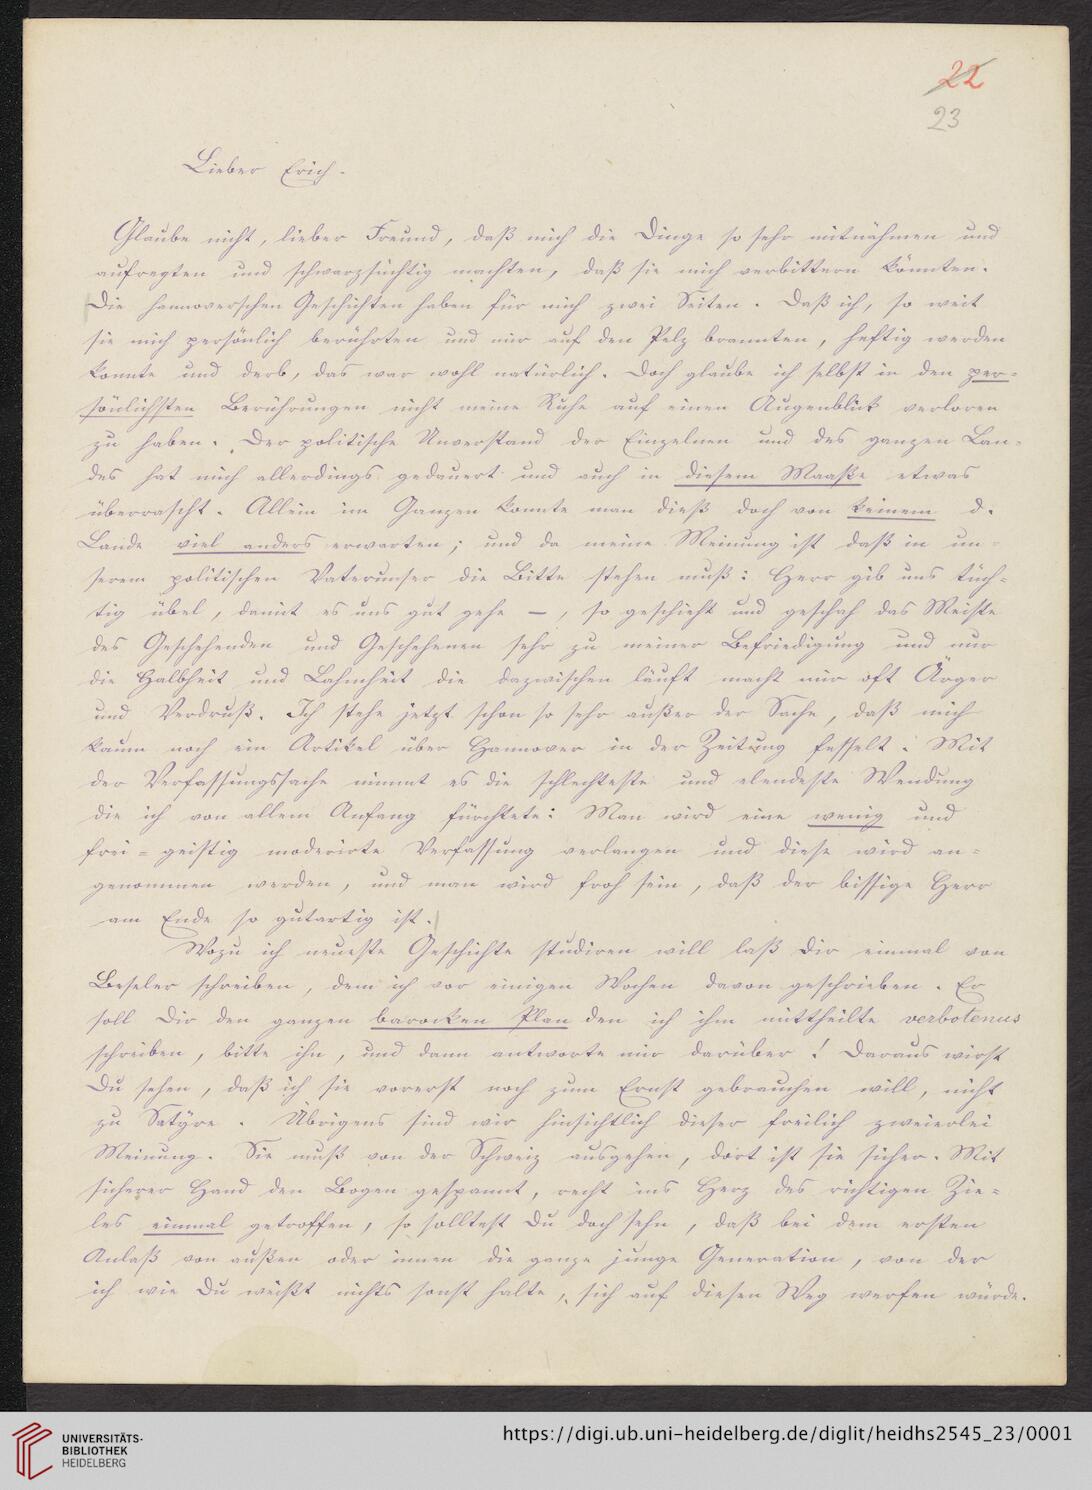 22
23
Lieber Erich.
Glaube nicht, lieber Freund, daß mich die Dinge so sehr mitnähmen und
aufregten und schwarzsüchtig machten, daß sie mich verbittern könnten.
Die hannoverschen Geschichten haben für mich zwei Seiten. Daß ich, so weit
sie mich persönlich berührten und mir auf den Pelz brannten, heftig werden
konnte und derb, das war wohl natürlich. Doch glaube ich selbst in den per-
sönlichsten Berührungen nicht meine Ruhe auf einen Augenblick verloren
zu haben. Der politische Unverstand der Einzelnen und des ganzen Lan-
des hat mich allerdings gedauert und auch in diesem Maaße etwas
überrascht. Allein im Ganzen konnte man dieß doch von keinem d.
Lande viel anders erwarten; und da meine Meinung ist daß in un-
serem politischen Vaterunser die Bitte stehen muß: Herr gib uns tüch-
tig übel, damit es uns gut gehe —, so geschieht und geschah das Meiste
des Geschehenden und Geschehenen sehr zu meiner Befriedigung und nur
die Halbheit und Lahmheit die dazwischen läuft macht mir oft Ärger
und Verdruß. Ich stehe jetzt schon so sehr außer der Sache, daß mich
kaum noch ein Artikel über Hannover in der Zeitung fesselt. Mit
der Verfassungssache nimmt es die schlechteste und elendeste Wendung
die ich von allem Anfang fürchtete: Man wird eine wenig und
frei-geistig moderirte Verfassung verlangen und diese wird an-
genommen werden, und man wird froh sein, daß der bissige Herr
am Ende so gutartig ist.
Wozu ich neueste Geschichte studiren will laß Dir einmal von
Beseler schreiben, dem ich vor einigen Wochen davon geschrieben. Er
soll Dir den ganzen barocken Plan den ich ihm mittheilte verbotenus
schreiben, bitte ihn, und dann antworte mir darüber! Daraus wirst
Du sehen, daß ich sie vorerst noch zum Ernst gebrauchen will, nicht
zu Satyre. Übrigens sind wir hinsichtlich dieser freilich zweierlei
Meinung. Sie muß von der Schweiz ausgehen, dort ist sie sicher. Mit
sicherer Hand den Bogen gespannt, recht ins Herz des richtigen Zie-
les einmal getroffen, so solltest Du doch sehn, daß bei dem ersten
Anlaß von außen oder innen die ganze junge Generation, von der
ich wie Du weißt nichts sonst halte, sich auf diesen Weg werfen würde.
UNIVERSITÄTS-
BIBLIOTHEK
HEIDELBERG
https://digi.ub.uni-heidelberg.de/diglit/heidhs2545_23/0001